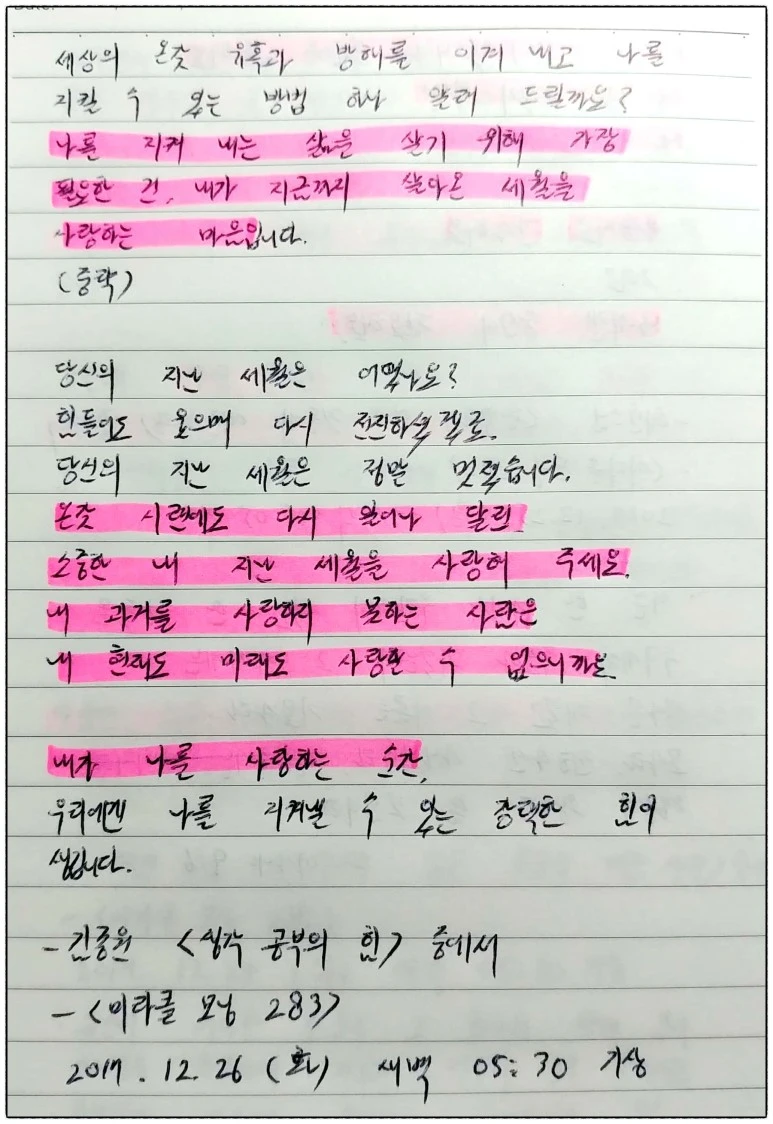 세상의 온갖 유혹과 방해를 이겨 내고 나를
지킬 수 있는 방법 하나 알려 드릴까요?
나를 지켜 내는 삶을 살기 위해 가장
필요한 건, 내가 지금까지 살아온 세월을
사랑하는 마음입니다.
(중략)
당신의 지난 세월은 어땠나요?
힘들어도 웃으며 다시 전진하셨겠죠.
당신의 지난 세월은 정말 멋졌습니다.
온갖 시련에도 다시 일어나 달린,
소중한 내 지난 세월을 사랑해 주세요.
내 과거를 사랑하지 못하는 사람은
내 현재도 미래도 사랑할 수 없으니까요.
내가 나를 사랑하는 순간,
우리에겐 나를 지켜낼 수 있는 강력한 힘이
생깁니다.
- 김종원 <생각 공부의 힘> 중에서
- <미라클 모닝 283>
2017. 12. 26 (화) 새벽 05:30 기상